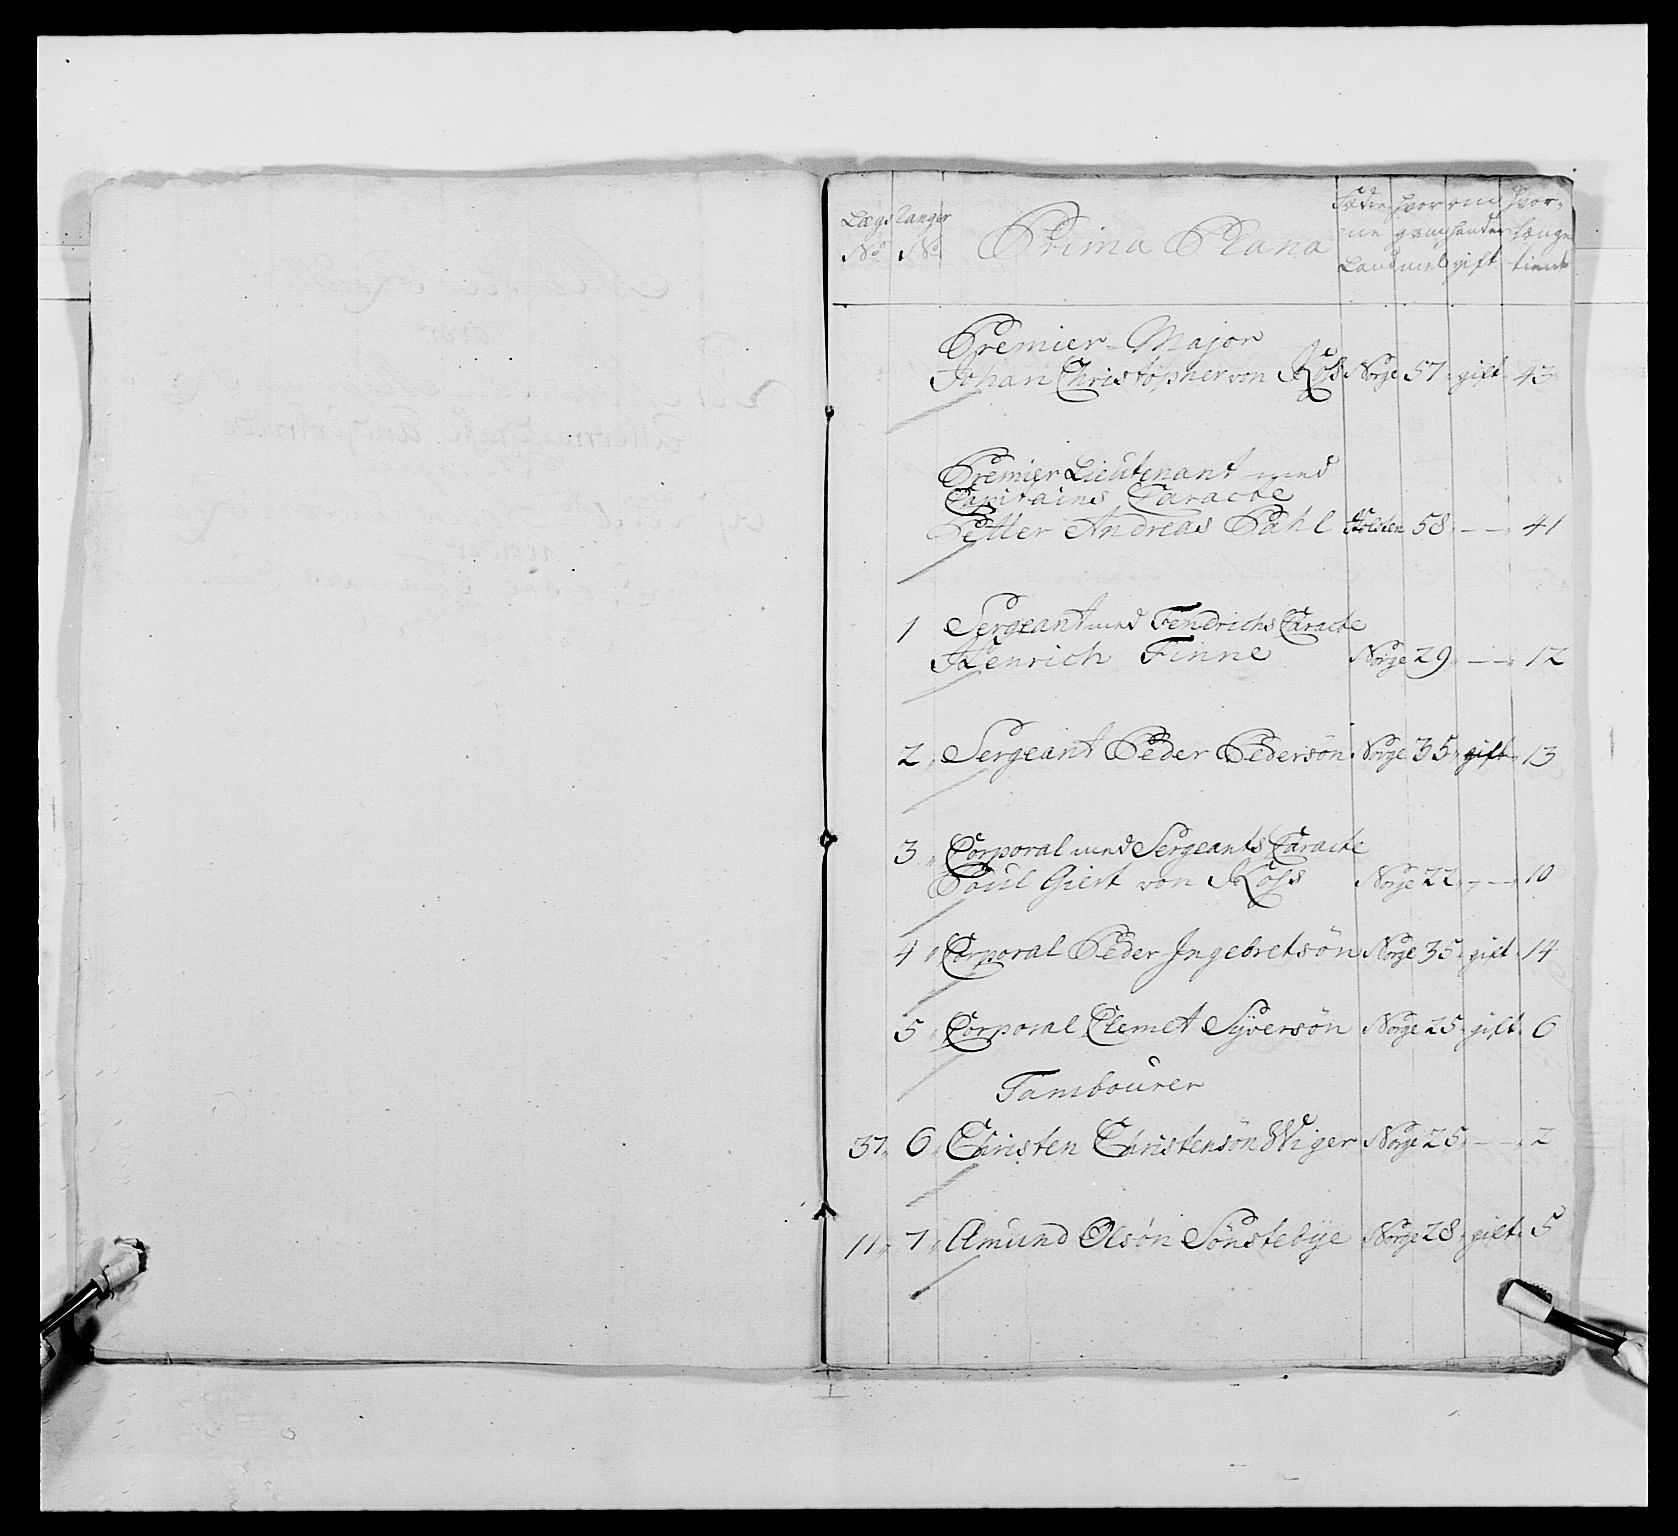 Lægs Ranger Prima Plana Fædre- hvor om hvor-
No No ne gam- handr længe
Land mel gift tient
Premier-Major
Johan Christopher von Koss Norge 57. gift 43
Premier Lieutenant med
Capitains Caracte
Petter Andreas Pahl Holsten 58. — 41
1 Sergeant med Fendrichs Caracte
Henrich Finne Norge 29. — 12
2. Sergeant Peder Pedersön. Norge 35. gift. 13
3. Corporal med Sergeants Caracte
Poul Giert von Koss Norge 22. — 10
4. Corporal Peder Ingebretsön Norge 35. gift. 14
5. Corporal Clemet Syversön Norge 25. gift. 6
Tambourer
37. 6. Christen Christensön Wiger Norge 25. — 2
11. 7. Amund Olsön Sönstebye Norge 28. gift. 5